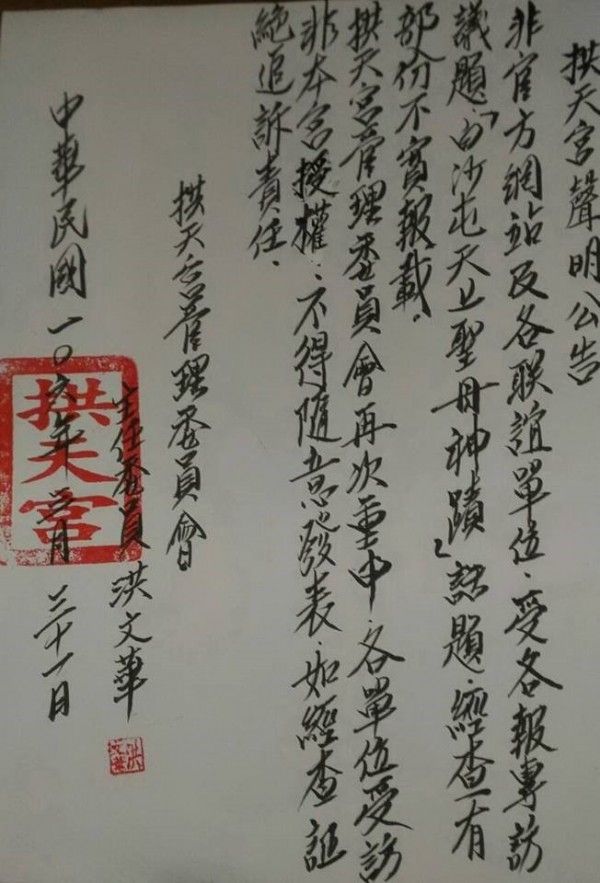 拱天宮聲明公告
非官方網站及各聯誼單位、受各報專訪
議題「白沙屯天上聖母神蹟」話題、經查有
部份不實報載.
拱天宮管理委員會再次重申、各單位受訪
非本宮授權:不得隨意發表、如經查証
絕追訴責任.
拱天宮管理委員會
主任委員 洪文華
洪文華
中華民國一0六年三月三十一日
拱天宮